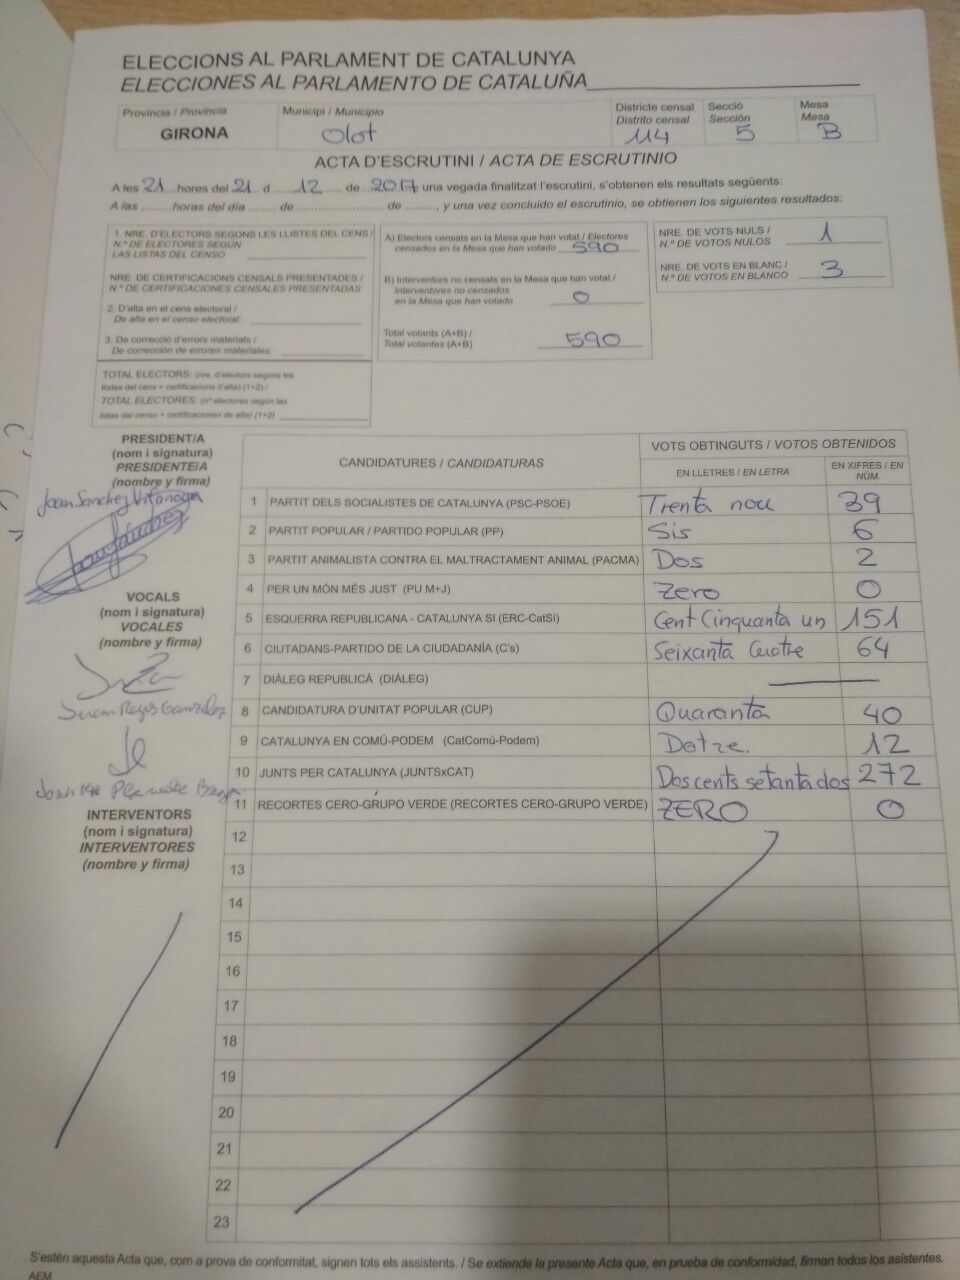 ELECCIONS AL PARLAMENT DE CATALUNYA
ELECCIONES AL PARLAMENTO DE CATALUÑA
Província / Provincia
GIRONA
Municipi / Municipio
Olot
Districte censal
Distrito censal
114
Secció
Sección
5
Mesa
Mesa
B
ACTA D'ESCRUTINI / ACTA DE ESCRUTINIO
A les 21 hores del 21 d 12 de 2017 una vegada finalitzat l'escrutini, s'obtenen els resultats següents:
A las ......... horas del día ....... de .......................... de ........, y una vez concluido el escrutinio, se obtienen los siguientes resultados:
1. NRE. D'ELECTORS SEGONS LES LLISTES DEL CENS /
N.º DE ELECTORES SEGÚN
LAS LISTAS DEL CENSO
NRE. DE CERTIFICACIONS CENSALS PRESENTADES /
N.º DE CERTIFICACIONES CENSALES PRESENTADAS
2. D'alta en el cens electoral /
De alta en el censo electoral:
3. De correcció d'errors materials /
De corrección de errores materiales:
TOTAL ELECTORS: (nre. d'electors segons les
llistes del cens + certificacions d'alta) (1+2) /
TOTAL ELECTORES: (nº electores según las
listas del censo + certificaciones de alta) (1+2)
A) Electors censats en la Mesa que han votat / Electores
censados en la Mesa que han votado 590
B) Interventors no censats en la Mesa que han votat /
Interventores no censados
en la Mesa que han votado 0
Total votants (A+B) /
Total votantes (A+B) 590
NRE. DE VOTS NULS /
N.º DE VOTOS NULOS 1
NRE. DE VOTS EN BLANC /
N.º DE VOTOS EN BLANCO 3
PRESIDENT/A
(nom i signatura)
PRESIDENTE/A
(nombre y firma)
Joan Sanchez Vilanova
VOCALS
(nom i signatura)
VOCALES
(nombre y firma)
Juan Reyes Gonzalez
INTERVENTORS
(nom i signatura)
INTERVENTORES
(nombre y firma)
CANDIDATURES / CANDIDATURAS
VOTS OBTINGUTS / VOTOS OBTENIDOS
EN LLETRES / EN LETRA
EN XIFRES / EN NÚM.
1 PARTIT DELS SOCIALISTES DE CATALUNYA (PSC-PSOE) Trenta nou 39
2 PARTIT POPULAR / PARTIDO POPULAR (PP) Sis 6
3 PARTIT ANIMALISTA CONTRA EL MALTRACTAMENT ANIMAL (PACMA) Dos 2
4 PER UN MÓN MÉS JUST (PU M+J) Zero 0
5 ESQUERRA REPUBLICANA - CATALUNYA SÍ (ERC-CatSí) Cent Cinquanta un 151
6 CIUTADANS-PARTIDO DE LA CIUDADANÍA (C's) Seixanta Cuatre 64
7 DIÀLEG REPUBLICÀ (DIÀLEG)
8 CANDIDATURA D'UNITAT POPULAR (CUP) Quaranta 40
9 CATALUNYA EN COMÚ-PODEM (CatComú-Podem) Dotze. 12
10 JUNTS PER CATALUNYA (JUNTSxCAT) Doscents setanta dos 272
11 RECORTES CERO-GRUPO VERDE (RECORTES CERO-GRUPO VERDE) ZERO 0
12
13
14
15
16
17
18
19
20
21
22
23
S'estén aquesta Acta que, com a prova de conformitat, signen tots els assistents. / Se extiende la presente Acta que, en prueba de conformidad, firman todos los asistentes.
AEM